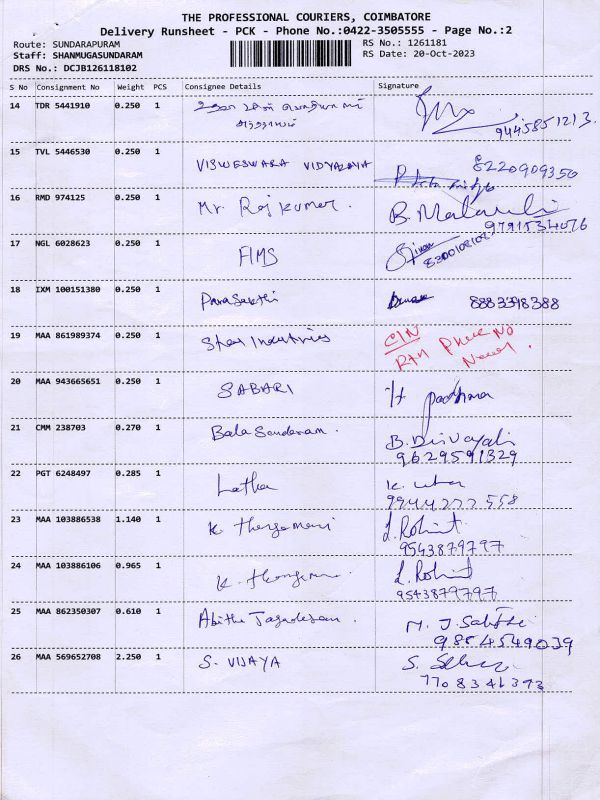 THE PROFESSIONAL COURIERS, COIMBATORE
Delivery Runsheet - PCK - Phone No.:0422-3505555 - Page No.:2
Route: SUNDARAPURAM RS No.: 1261181
Staff: SHANMUGASUNDARAM RS Date: 20-Oct-2023
DRS No.: DCJB126118102
S No Consignment No Weight PCS Consignee Details Signature
14 TDR 5441910 0.250 1
9445851213.
15 TVL 5446530 0.250 1 VISWESWARA VIDYALAYA 8220909350
16 RMD 974125 0.250 1 Mr. Rajkumar. B.
9791534076
17 NGL 6028623 0.250 1 FIMS
18 IXM 100151380 0.250 1 Parasakthi 8883398388
19 MAA 861989374 0.250 1 Star Industries
Phone NO
20 MAA 943665651 0.250 1 SABARI
21 CMM 238703 0.270 1 Bala Sundaram. B.
9629591329
22 PGT 6248497 0.285 1 Latha K.
9944277558
23 MAA 103886538 1.140 1 K. L. Rohit
9543879797
24 MAA 103886106 0.965 1 K. L. Rohit
9543879797
25 MAA 862350307 0.610 1 Abitha Jagadesan. M. J.
9884549039
26 MAA 569652708 2.250 1 S. VIJAYA S.
7708341373